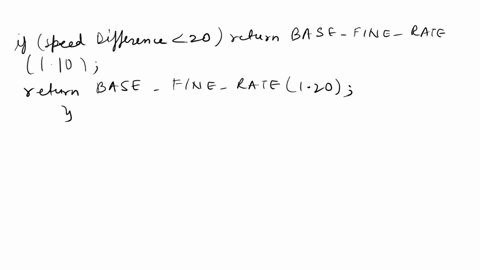 if (speed Difference < 20) return BASE-FINE-RATE
(1.10);
return BASE - FINE - RATE (1.20);
}